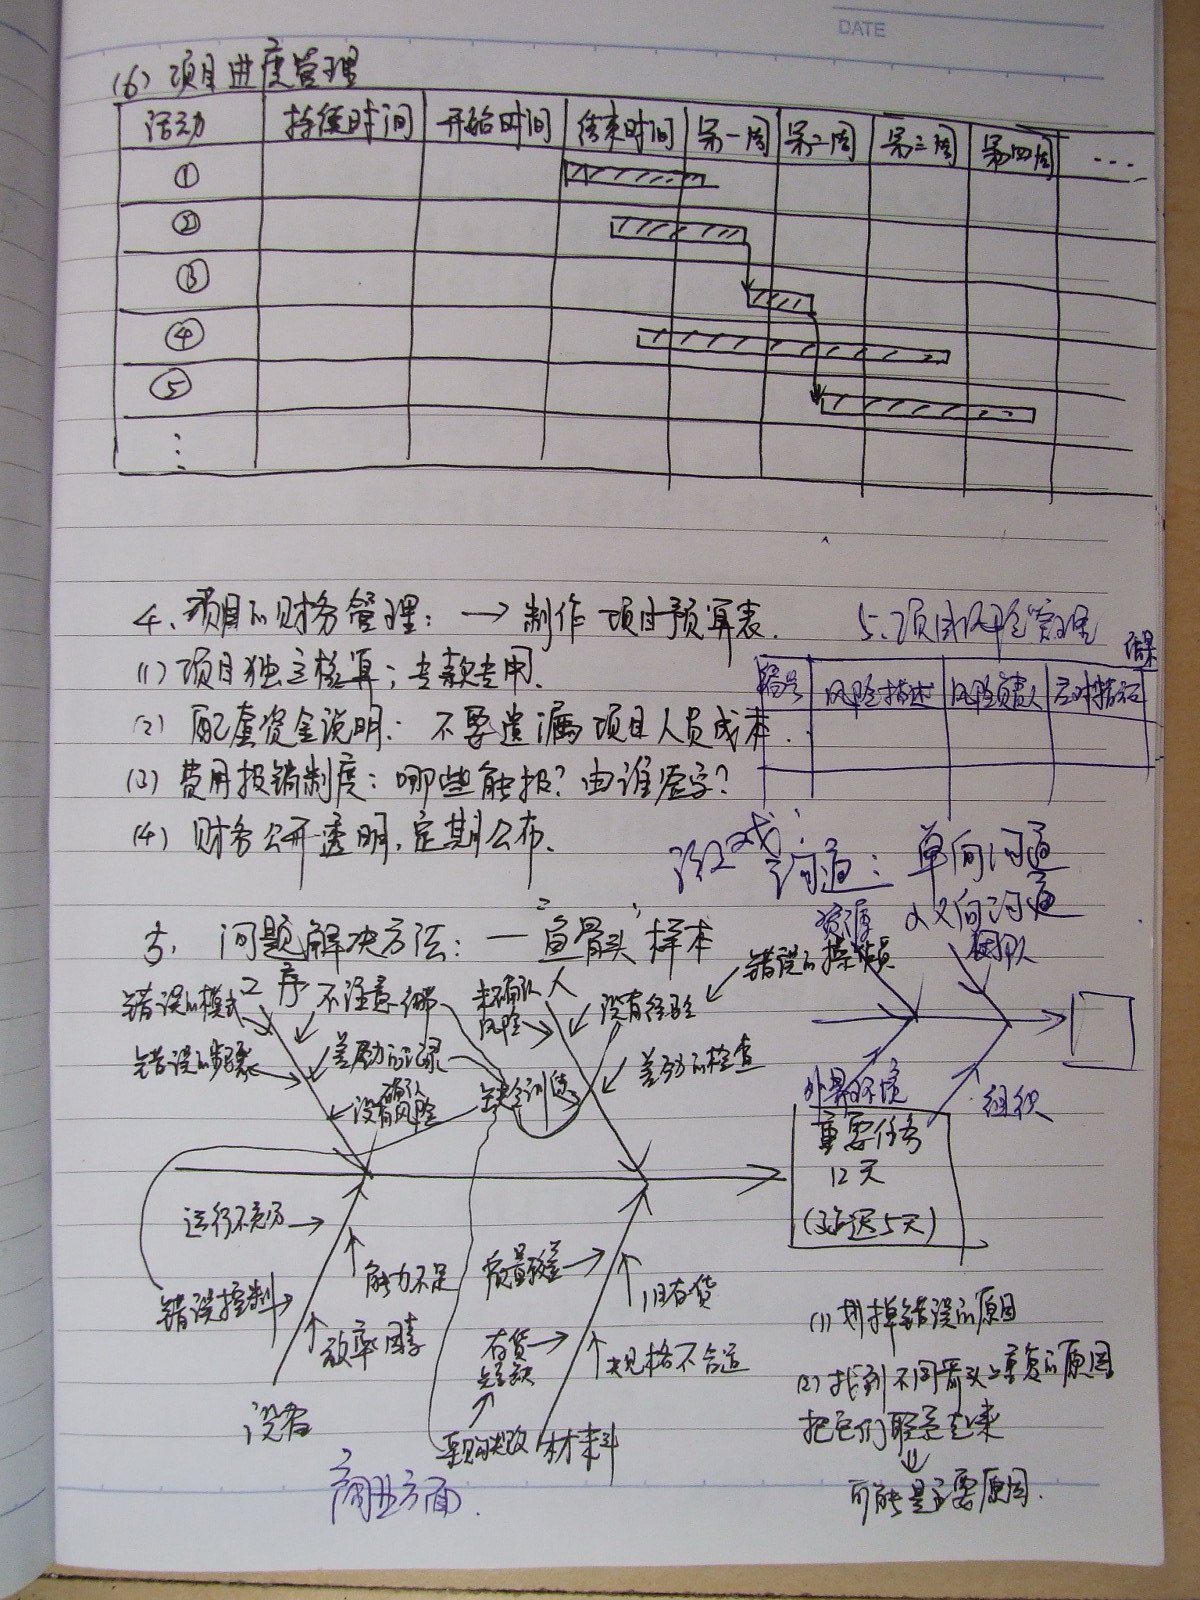 DATE
(6) 项目进度管理
活动 持续时间 开始时间 结束时间 第一周 第二周 第三周 第四周 ...
①
②
③
④
⑤
4、项目的财务管理: → 制作项目预算表.
5、项目风险管理
(1) 项目独立核算; 专款专用.
编号 风险描述 风险负责人 应对措施 结果
(2) 配套资金说明: 不要遗漏项目人员成本.
(3) 费用报销制度: 哪些能报? 由谁签字?
(4) 财务公开透明, 定期公布.
游戏: 沟通: 单向沟通
双向沟通
5、问题解决方法: 一"鱼骨头"样本
资源
团队
外界环境
组织
工序
错误的模式
不注意细节
错误的步骤
差劲的记录
没有确认风险
人
未确认风险
没有经验
错误的操作员
缺乏训练
差劲的检查
重要任务
12天
(延迟5天)
运行不充分
错误控制
能力不足
效率因素
设备
质量较差
旧存货
存货短缺
规格不合适
采购失败
材料
商业方面.
(1) 划掉错误的原因
(2) 找到不同箭头上重复的原因
把它们联系起来
可能是主要原因.